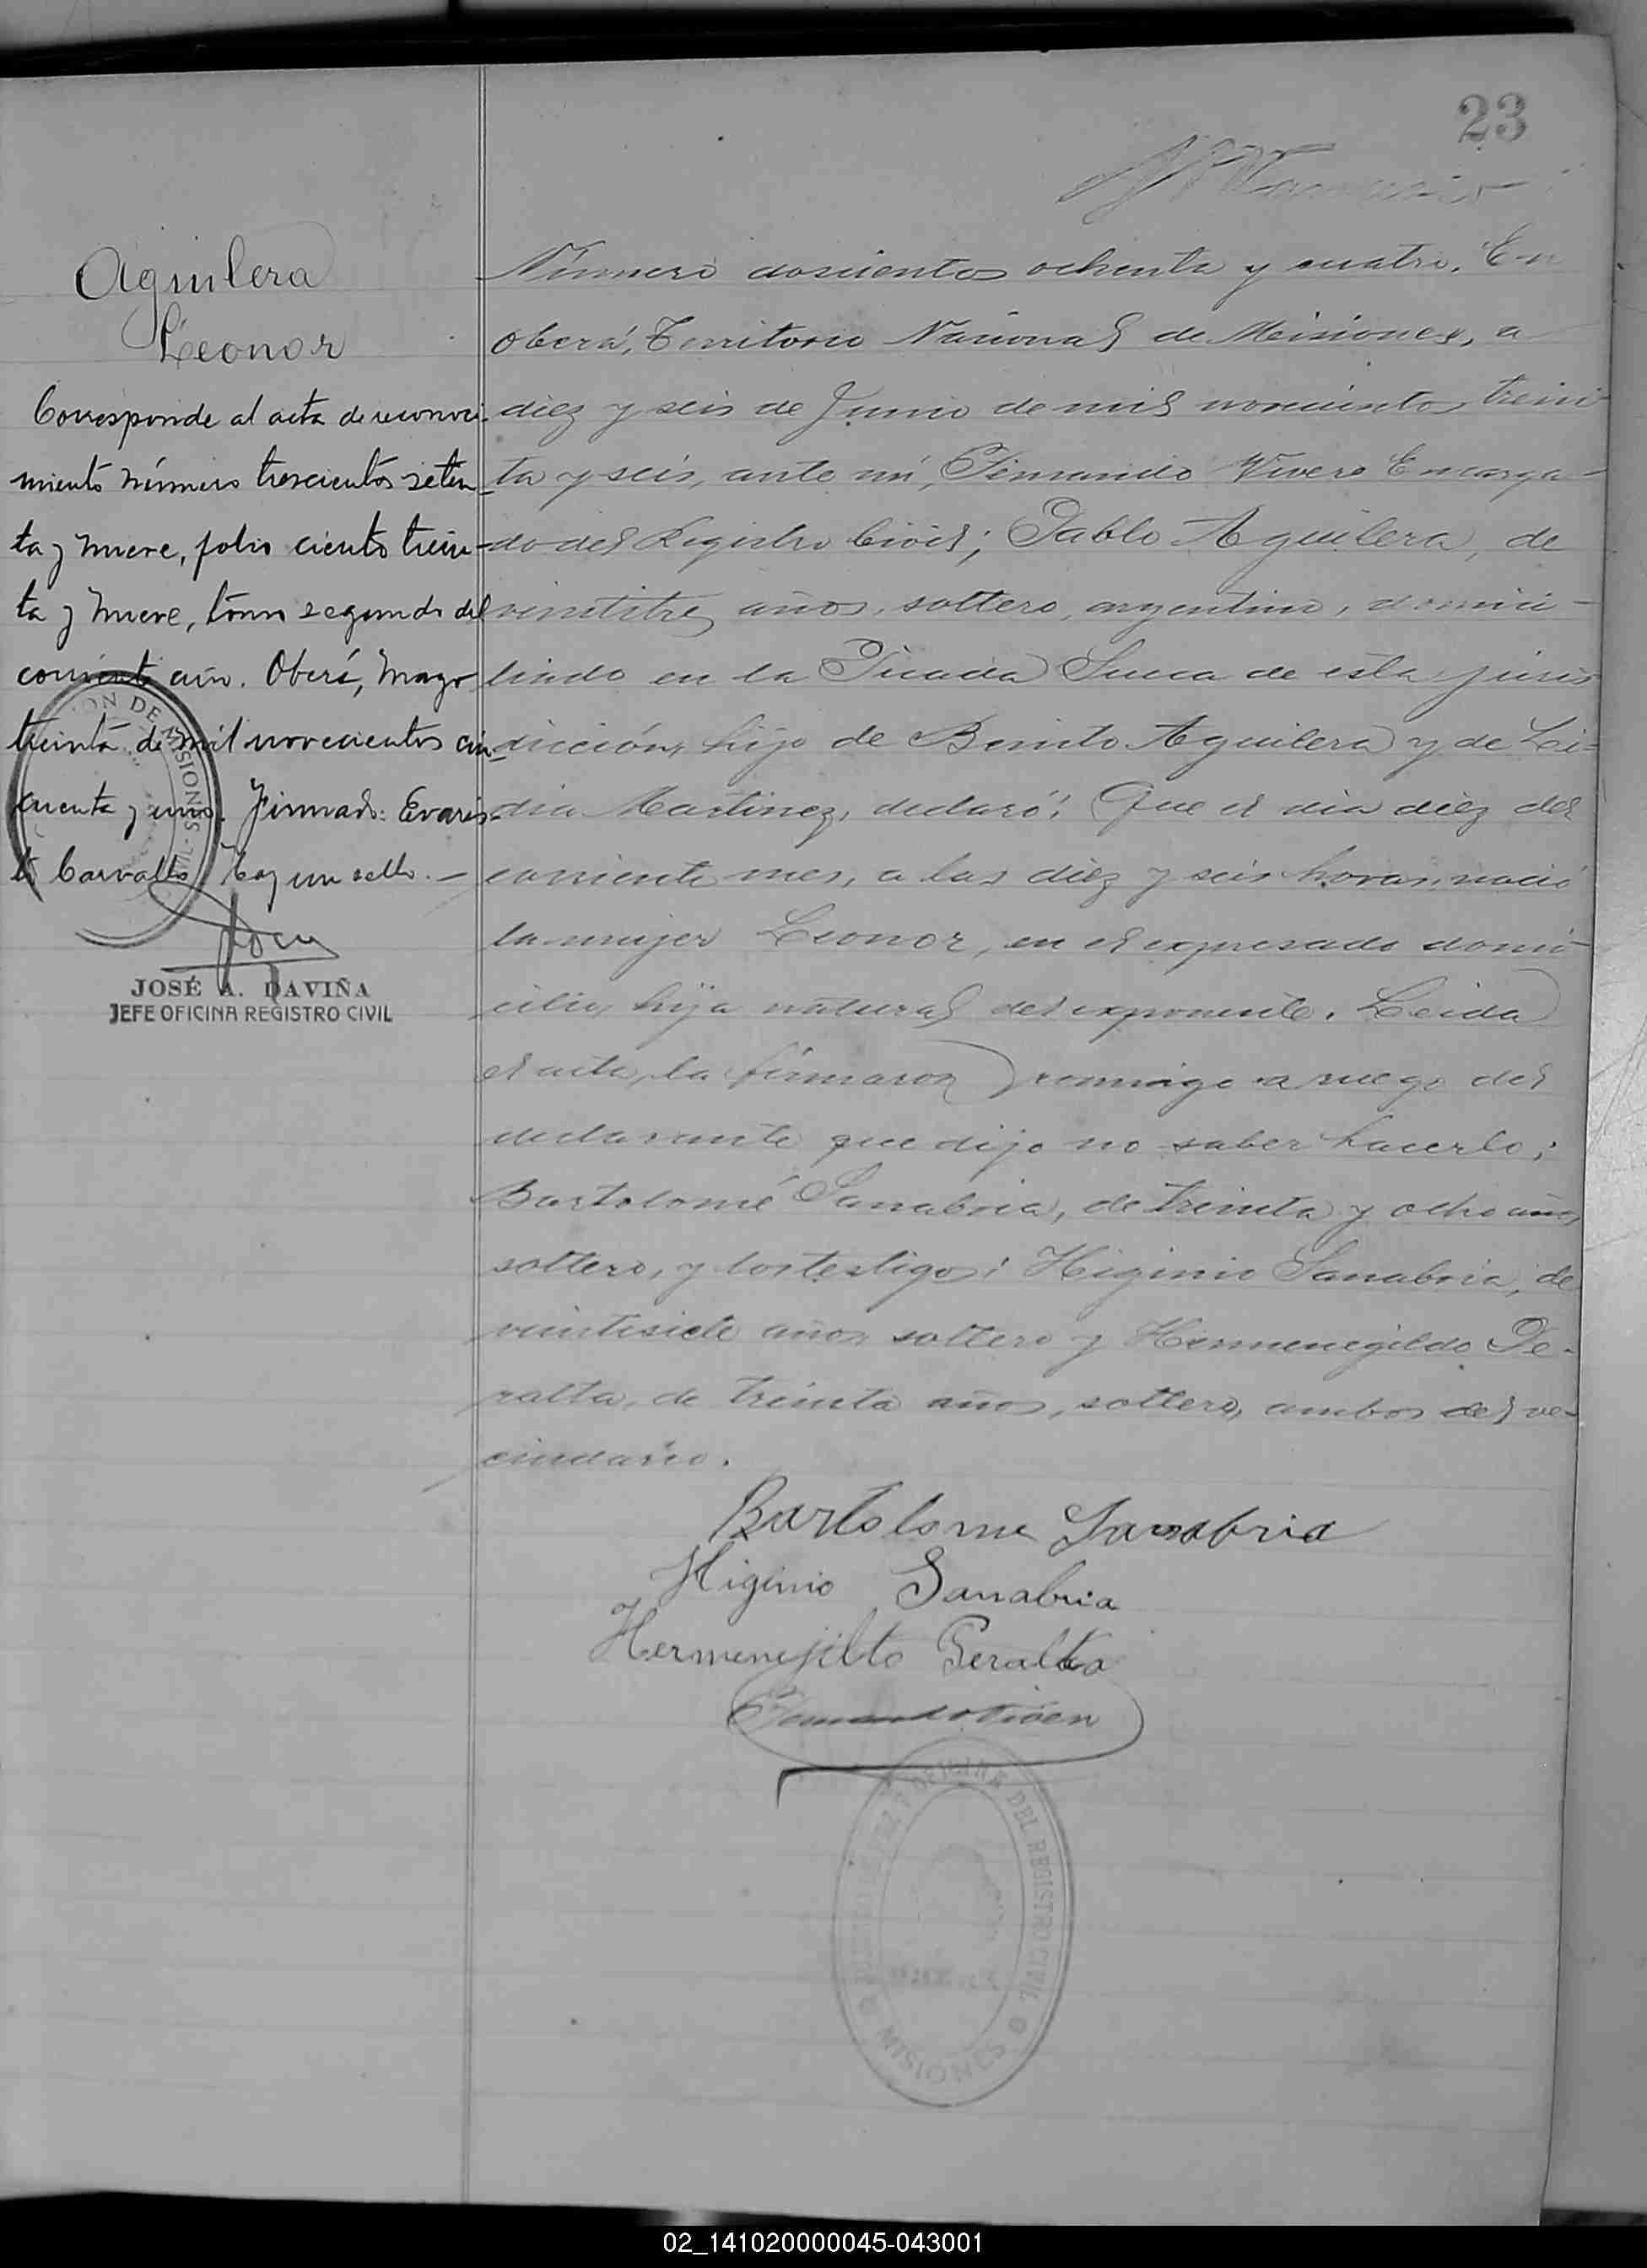 23
Aguilera
Leonor
Corresponde al acta de reconoci-
miento número trescientos seten-
ta y nueve, folio ciento trein-
ta y nueve, tomo segundo del
corriente año. Oberá, Mayo
treinta de mil novecientos cin-
cuenta y uno. Firmado: Evaris-
to Carvallo. Hay un sello. -
JOSÉ A. DAVIÑA
JEFE OFICINA REGISTRO CIVIL
Número doscientos ochenta y cuatro. En
Oberá, Territorio Nacional de Misiones, a
diez y seis de Junio de mil novecientos trein-
ta y seis, ante mí, Fernando Encarga-
do del Registro Civil; Pablo Aguilera, de
veintitres años, soltero, argentino, domici-
liado en la Picada Sueca de esta juris-
dicción, hijo de Benito Aguilera y de Li-
dia Martinez, declaró: Que el día diez del
corriente mes, a las diez y seis horas, nació
la mujer Leonor, en el expresado domi-
cilio, hija natural del exponente. Leida
el acta, la firmaron conmigo a ruego del
declarante que dijo no saber hacerlo;
Bartolomé Sanabria, de treinta y ocho años,
soltero, y los testigos: Higinio Sanabria, de
veintisiete años soltero y Hermenegildo Pe-
ralta, de treinta años, soltero, ambos del ve-
cindario.
Bartolome Sanabria
Higinio Sanabria
Hermenejilto Peralta
OFICINA DEL REGISTRO CIVIL
MISIONES
02_141020000045-043001